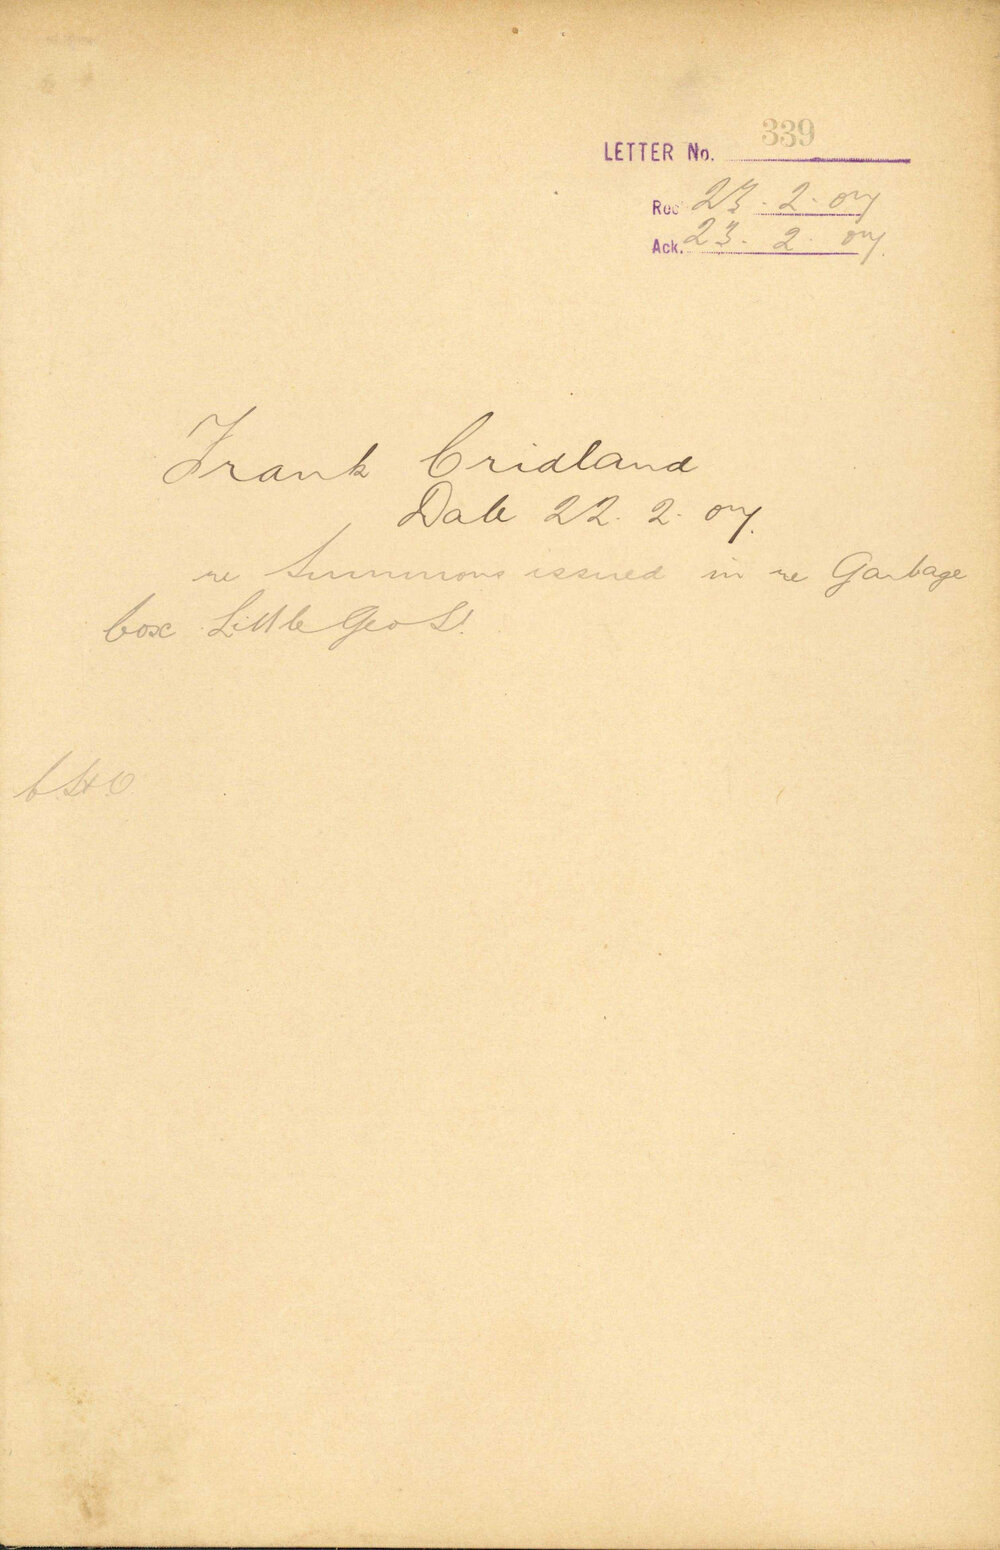 LETTER No. 339
Rec 23. 2. 07
Ack. 23. 2. 07.
Frank Cridland
Date 22. 2. 07.
re Summons issued in re Garbage
box Little Geo St.
C.H.O